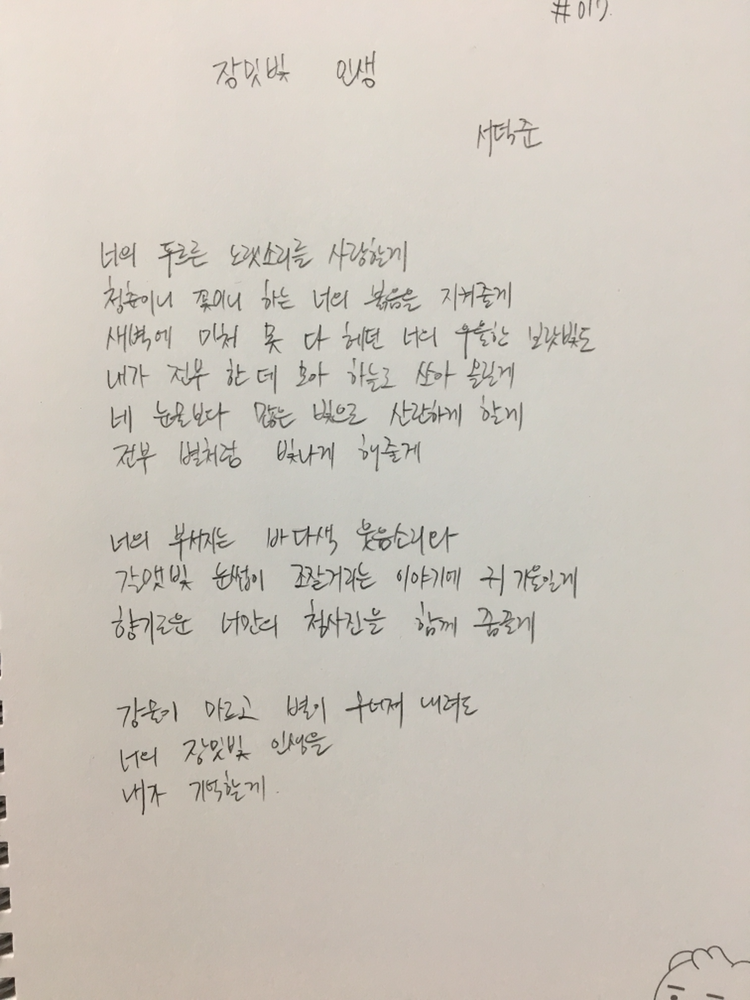 #017.
장밋빛 인생
서덕준
너의 푸르른 노랫소리를 사랑할게
청춘이니 꽃이니 하는 너의 붉음을 지켜줄게
새벽에 미처 못 다 헤던 너의 우울한 보랏빛도
내가 전부 한 데 모아 하늘로 쏘아 올릴게
네 눈물보다 많은 빛으로 산란하게 할게
전부 별처럼 빛나게 해줄게
너의 부서지는 바다색 웃음소리와
갈맷빛 눈썹이 조잘거리는 이야기에 귀 기울일게
향기로운 너만의 청사진을 함께 꿈꿀게
강물이 마르고 별이 무너져 내려도
너의 장밋빛 인생을
내가 기억할게.